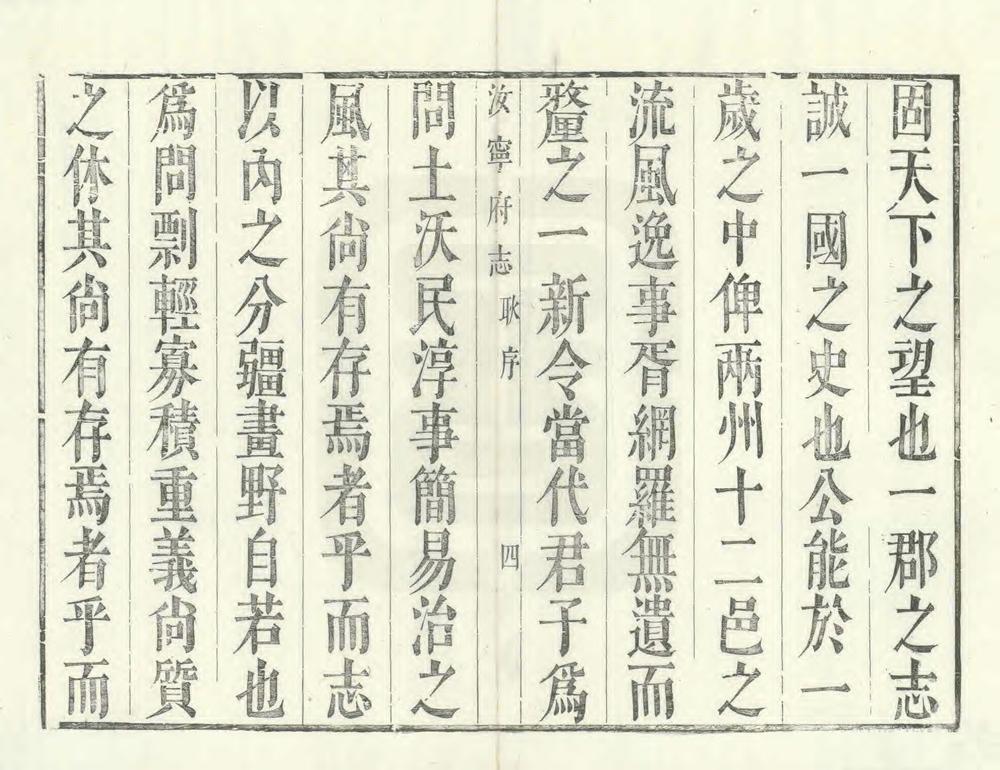 固天下之望也一郡之志
誠一國之史也公能於一
歲之中俾兩州十二邑之
流風逸事胥網羅無遺而
釐之一新令當代君子爲
汝寧府志 耿序 四
問土沃民淳事簡易治之
風其尙有存焉者乎而志
以內之分疆畫野自若也
爲問剽輕寡積重義尙質
之休其尙有存焉者乎而